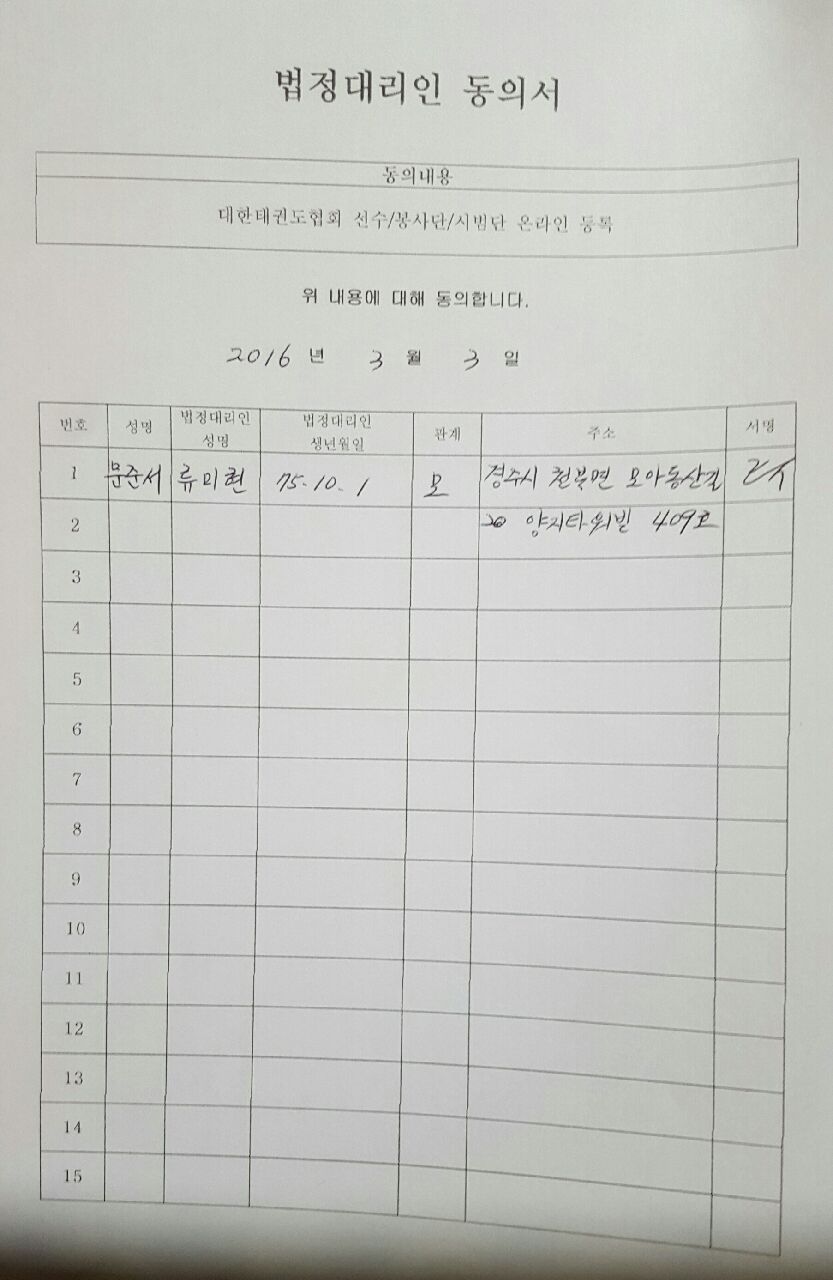 법정대리인 동의서
동의내용
대한태권도협회 선수/봉사단/시범단 온라인 등록
위 내용에 대해 동의합니다.
2016 년 3 월 3 일
번호 성명 법정대리인 성명 법정대리인 생년월일 관계 주소 서명
1 문준서 류미현 75.10.1 모 경주시 천북면 모아동산길
2 20 양지타워빌 409호
3
4
5
6
7
8
9
10
11
12
13
14
15